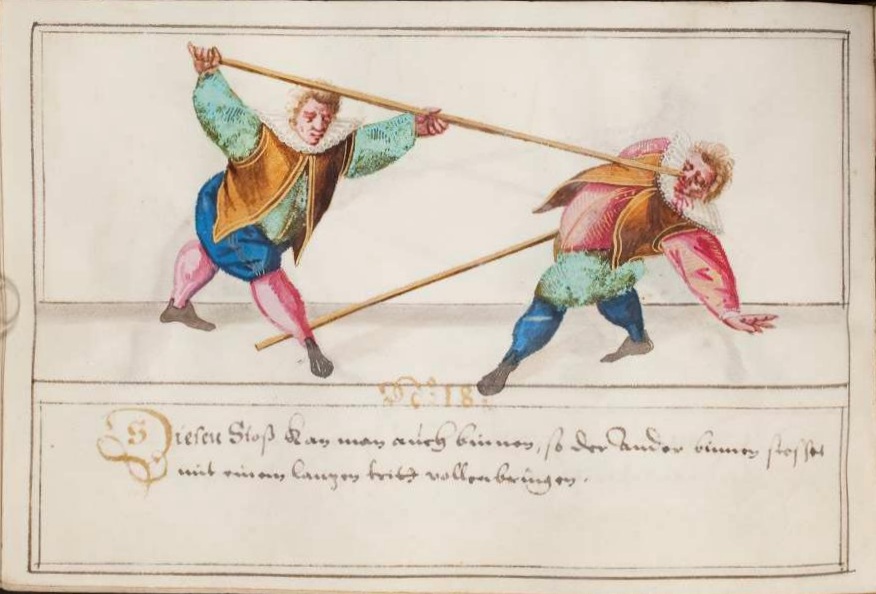 No 18.
Diesen Stoß Kan man auch binnen, so der Ander binnen stosset
mit einem langen tritt vollenbringen.